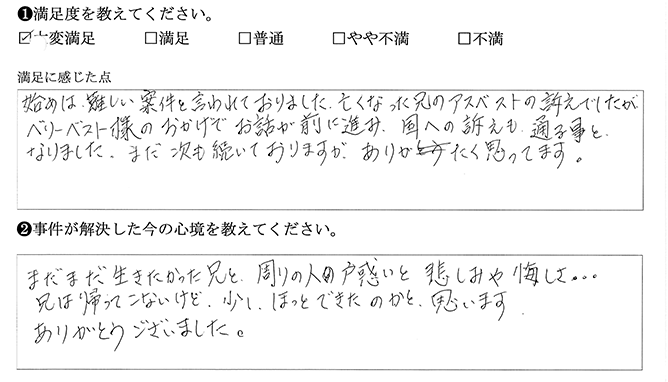 ❶満足度を教えてください。
☑大変満足 □満足 □普通 □やや不満 □不満
満足に感じた点
始めは、難しい案件と言われておりました、亡くなった兄のアスベストの訴えでしたが
ベリーベスト様のおかげでお話が前に進み、国への訴えも、通る事と
なりました、まだ次も続いておりますが、ありがたく思ってます。
❷事件が解決した今の心境を教えてください。
まだまだ生きたかった兄と、周りの人の戸惑いと悲しみや悔しさ…
兄は帰ってこないけど、少し、ほっとできたのかと、思います
ありがとうございました。